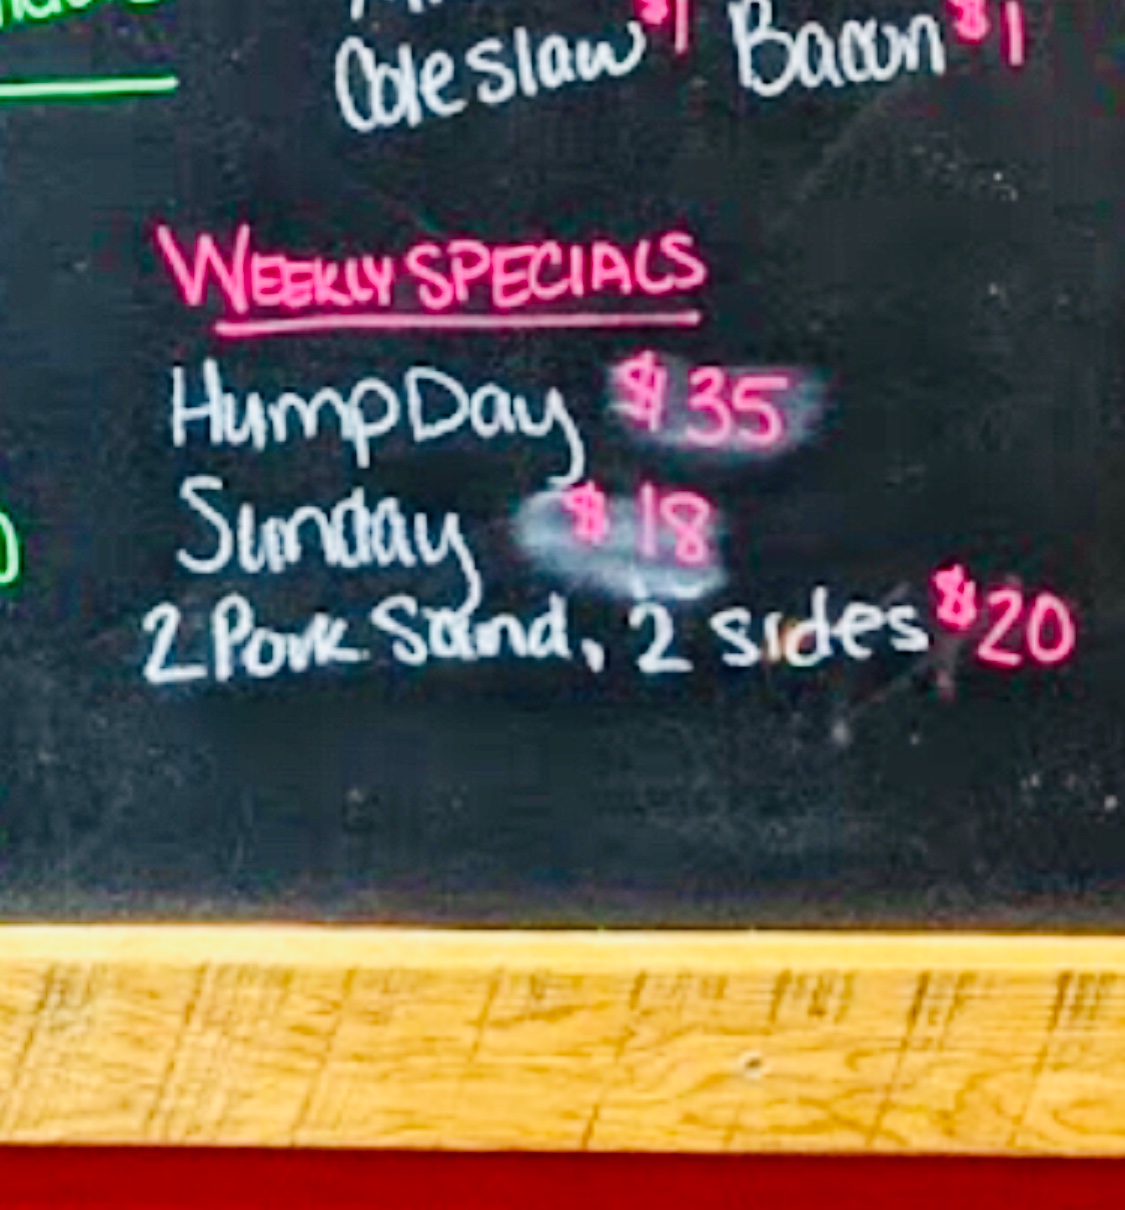 Coleslaw $1 Bacon $1
WEEKLY SPECIALS
Hump Day $35
Sunday $18
2 Pork Sand, 2 sides $20